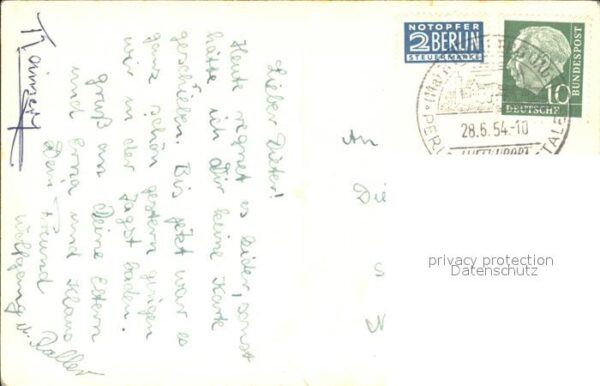 Lieber Dieter!
Heute regnet es leider, sonst
hätte ich Dir keine Karte
geschrieben. Bis jetzt war es
ganz schön gestern gingen
wir in der Jagst baden.
gruß an Deine Eltern
und Erna und Klaus
Dein Freund
Wolfgang u.
NOTOPFER
2 BERLIN
STEUERMARKE
DEUTSCHE
BUNDESPOST
10
28.6.54.-10
LUFTKURORT
An
Die
privacy protection
Datenschutz